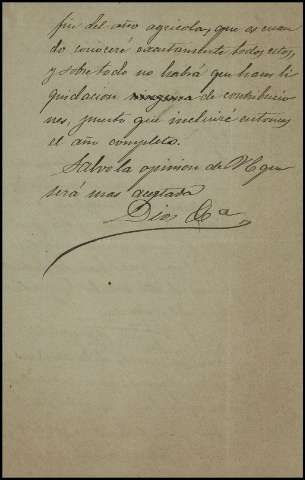 fin del año agricola, que es cuan
do conoceré exactamente todos estos,
y sobre todo no habrá que hacer li
quidacion ninguna de contribucio
nes, puesto que incluiré entonces
el año completo.
Salvo la opinion de V. que
será mas acertada
Dios &a